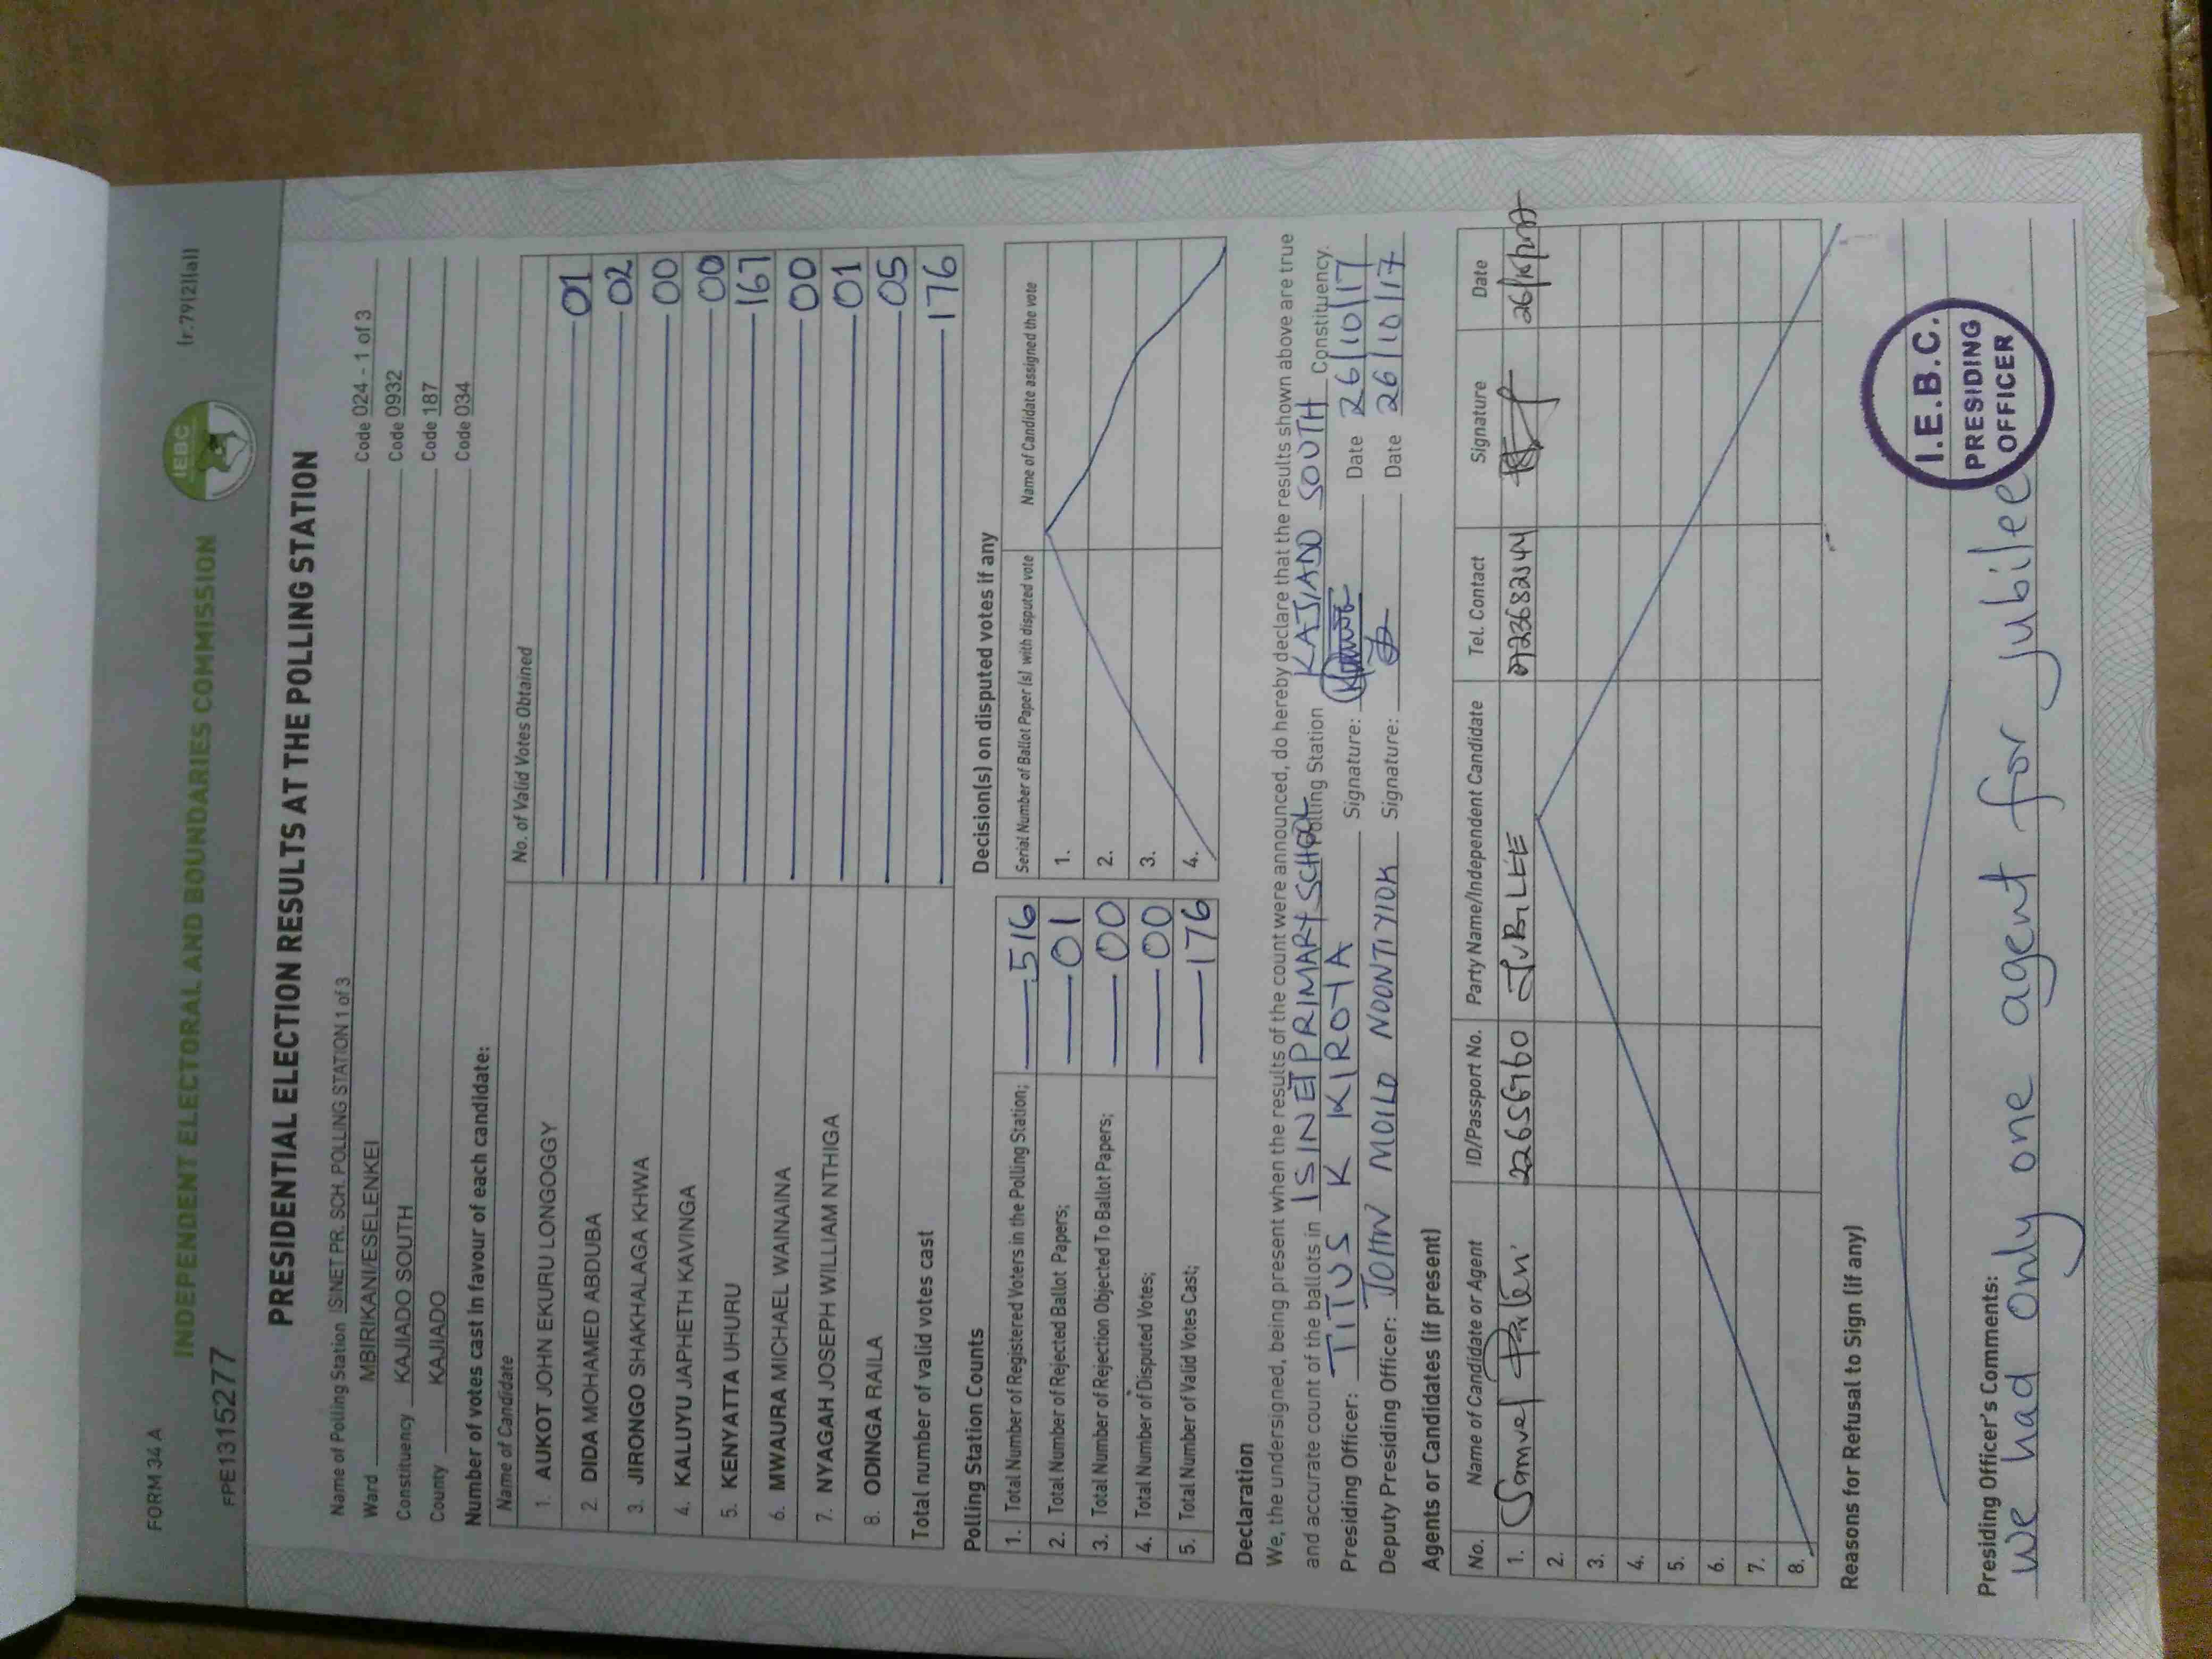 FORM 34 A
(r.79(2)(a))
INDEPENDENT ELECTORAL AND BOUNDARIES COMMISSION
IEBC
FPE1315277
PRESIDENTIAL ELECTION RESULTS AT THE POLLING STATION
Name of Polling Station ISINET PR. SCH. POLLING STATION 1 of 3 Code 024 - 1 of 3
Ward MBIRIKANI/ESELENKEI Code 0932
Constituency KAJIADO SOUTH Code 187
County KAJIADO Code 034
Number of votes cast in favour of each candidate:
Name of Candidate No. of Valid Votes Obtained
1. AUKOT JOHN EKURU LONGOGGY 01
2 DIDA MOHAMED ABDUBA 02
3. JIRONGO SHAKHALAGA KHWA 00
4. KALUYU JAPHETH KAVINGA 00
5. KENYATTA UHURU 167
6. MWAURA MICHAEL WAINAINA 00
7. NYAGAH JOSEPH WILLIAM NTHIGA 01
8. ODINGA RAILA 05
Total number of valid votes cast 176
Polling Station Counts
1. Total Number of Registered Voters in the Polling Station; 516
2. Total Number of Rejected Ballot Papers; 01
3. Total Number of Rejection Objected To Ballot Papers; 00
4. Total Number of Disputed Votes; 00
5. Total Number of Valid Votes Cast; 176
Decision(s) on disputed votes if any
Serial Number of Ballot Paper (s) with disputed vote Name of Candidate assigned the vote
1.
2.
3.
4.
Declaration
We, the undersigned, being present when the results of the count were announced, do hereby declare that the results shown above are true
and accurate count of the ballots in ISINET PRIMARY SCHOOL Polling Station KAJIADO SOUTH Constituency.
Presiding Officer: TITUS K KIROYA Signature: Date 26/10/17
Deputy Presiding Officer: JOHN MOILO NOONTIYIOK Signature: Date 26/10/17
Agents or Candidates (if present)
No. Name of Candidate or Agent ID/Passport No. Party Name/Independent Candidate Tel. Contact Signature Date
1. Samuel JUBILEE
2.
3.
4.
5.
6.
7.
8.
Reasons for Refusal to Sign (if any)
Presiding Officer's Comments:
we had only one agent for jubilee
I.E.B.C.
PRESIDING
OFFICER